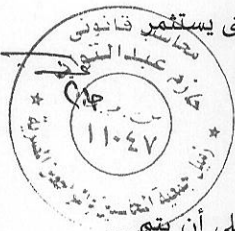 ى يستثمر
محاسب قانونى
حازم عبد
س . م . م
١١٠٤٧
زميل جمعية المحاسبين والمراجعين المصرية
لى أن يتم